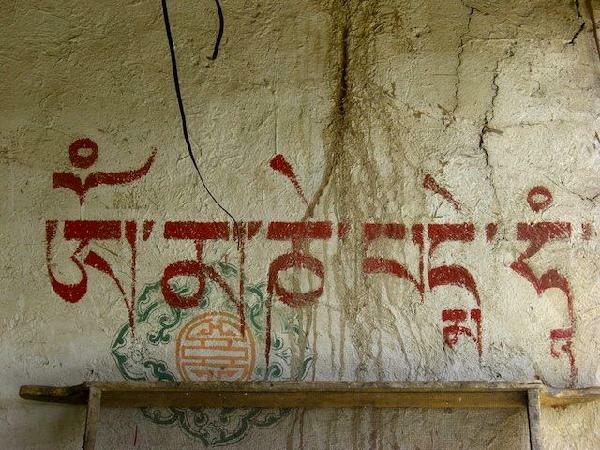 ཨོཾ་མ་ཎེ་པདྨེ་ཧཱུཾ་